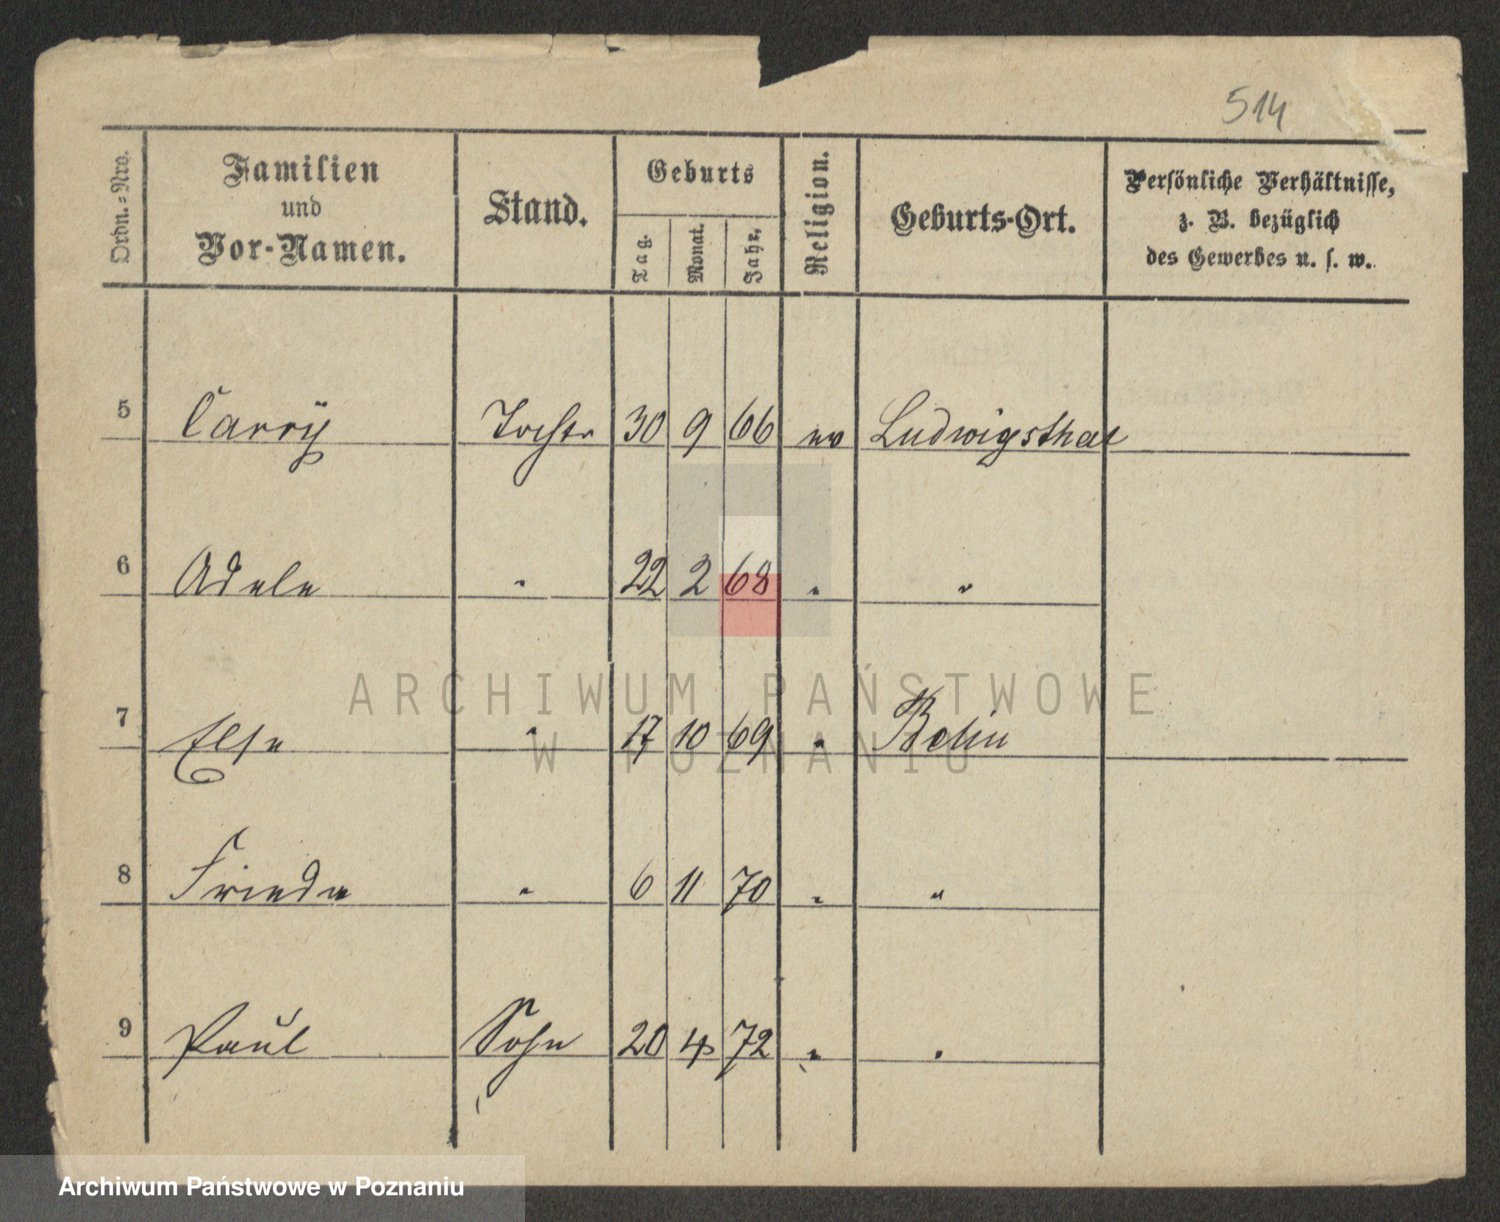 514
Ordn.-Nro.
Familien
und
Vor-Namen.
Stand.
Geburts
Tag.
Monat.
Jahr.
Religion.
Geburts-Ort.
Persönliche Verhältnisse,
z. B. bezüglich
des Gewerbes u. s. w.
5 Carry Tochter 30 9 66 ev Ludwigsthal
6 Adele " 22 2 68 " "
7 Else " 17 10 69 " Berlin
8 Frieda " 6 11 70 " "
9 Paul Sohn 20 4 72 " "
ARCHIWUM PAŃSTWOWE
W POZNANIU
Archiwum Państwowe w Poznaniu